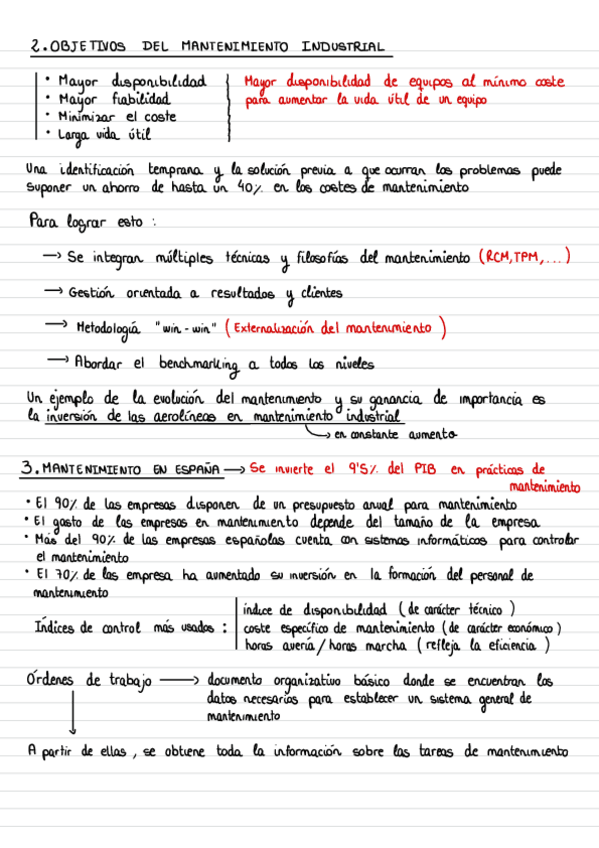 2. OBJETIVOS DEL MANTENIMIENTO INDUSTRIAL
• Mayor disponibilidad
• Mayor fiabilidad
• Minimizar el coste
• Larga vida útil
Mayor disponibilidad de equipos al mínimo coste
para aumentar la vida útil de un equipo
Una identificación temprana y la solución previa a que ocurran los problemas puede
suponer un ahorro de hasta un 40% en los costes de mantenimiento
Para lograr esto :
→ Se integran múltiples técnicas y filosofías del mantenimiento (RCM, TPM, ...)
→ Gestión orientada a resultados y clientes
→ Metodología "win-win" (Externalización del mantenimiento)
→ Abordar el benchmarking a todos los niveles
Un ejemplo de la evolución del mantenimiento y su ganancia de importancia es
la inversión de las aerolíneas en mantenimiento industrial
→ en constante aumento
3. MANTENIMIENTO EN ESPAÑA → Se invierte el 9'5% del PIB en prácticas de
mantenimiento
• El 90% de las empresas disponen de un presupuesto anual para mantenimiento
• El gasto de las empresas en mantenimiento depende del tamaño de la empresa
• Más del 90% de las empresas españolas cuenta con sistemas informáticos para controlar
el mantenimiento
• El 70% de las empresa ha aumentado su inversión en la formación del personal de
mantenimiento
Índices de control más usados :
índice de disponibilidad (de carácter técnico)
coste específico de mantenimiento (de carácter económico)
horas avería / horas marcha (refleja la eficiencia)
Órdenes de trabajo → documento organizativo básico donde se encuentran los
datos necesarios para establecer un sistema general de
mantenimiento
A partir de ellas, se obtiene toda la información sobre las tareas de mantenimiento